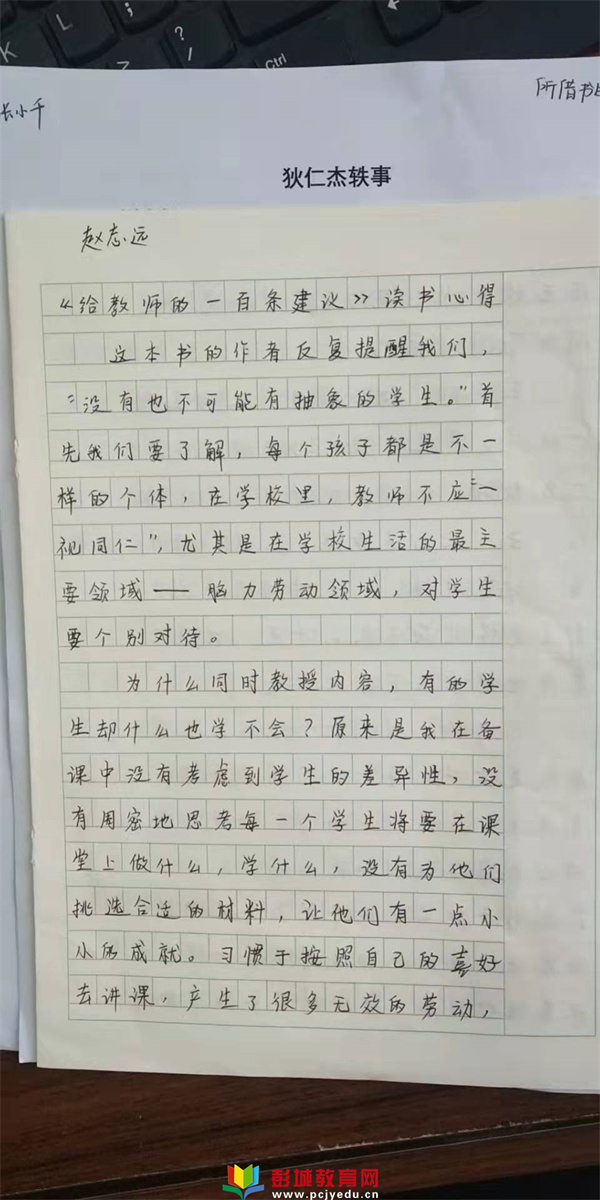 K
L
?
/
Ctrl
长小千
所借书目
狄仁杰轶事
赵志远
《给教师的一百条建议》读书心得
这本书的作者反复提醒我们，
“没有也不可能有抽象的学生。”首
先我们要了解，每个孩子都是不一
样的个体，在学校里，教师不应“一
视同仁”，尤其是在学校生活的最主
要领域——脑力劳动领域，对学生
要个别对待。
为什么同时教授内容，有的学
生却什么也学不会？原来是我在备
课中没有考虑到学生的差异性，没
有周密地思考每一个学生将要在课
堂上做什么，学什么，没有为他们
挑选合适的材料，让他们有一点小
小的成就。习惯于按照自己的喜好
去讲课，产生了很多无效的劳动，
彭城教育网
www.pcjyedu.cn